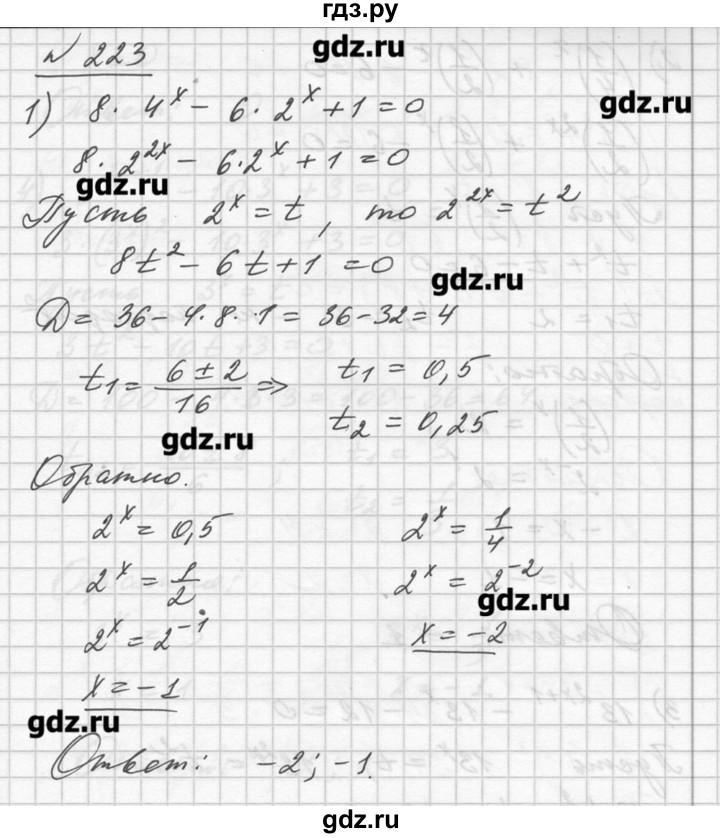 гдз.ру
gdz.ru
№ 223
1) 8 · 4^x − 6 · 2^x + 1 = 0
gdz.ru
8 · 2^{2x} − 6 · 2^x + 1 = 0
gdz.ru
Пусть 2^x = t, то 2^{2x} = t^2
8t^2 − 6t + 1 = 0
gdz.ru
D = 36 − 4 · 8 · 1 = 36 − 32 = 4
t_1 = (6 ± 2)/16 ⇒ t_1 = 0,5
t_2 = 0,25
gdz.ru
Обратно.
2^x = 0,5 2^x = 1/4
2^x = 1/2 2^x = 2^{-2}
gdz.ru
2^x = 2^{-1} x = −2
x = −1
gdz.ru
Ответ: −2; −1.
gdz.ru